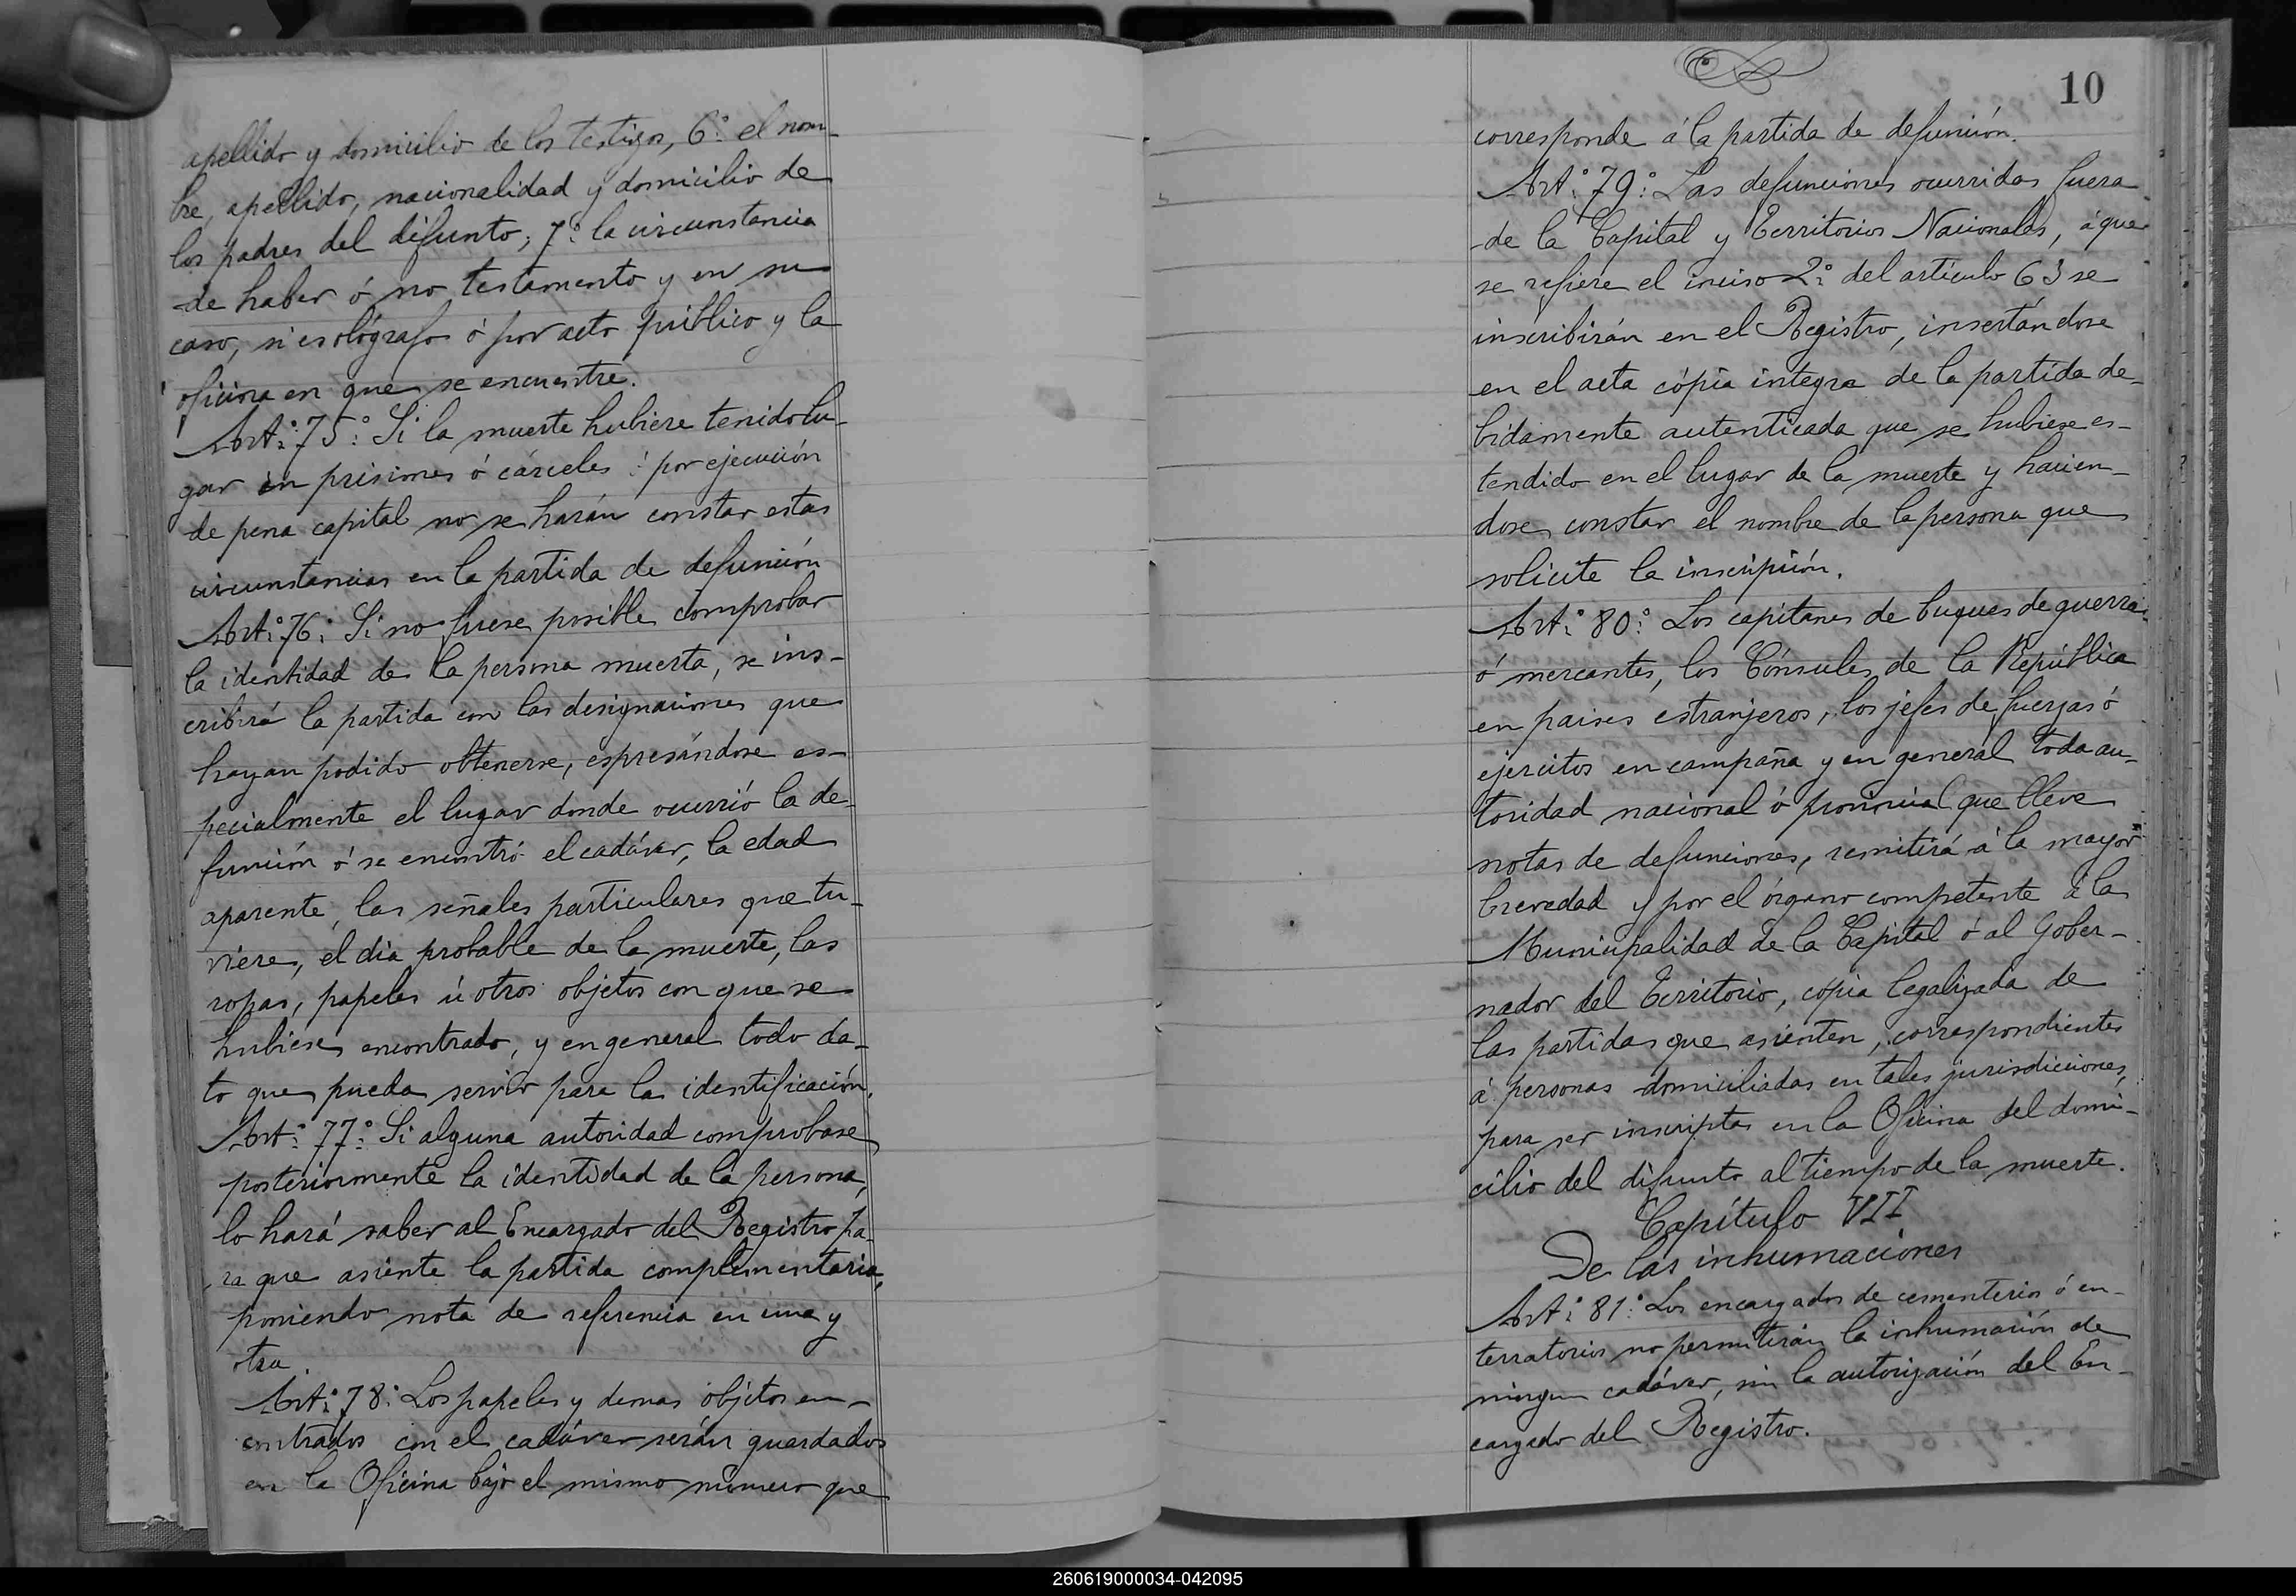 apellido y domicilio de los testigos, 6º el nom-
bre, apellido, nacionalidad y domicilio de
los padres del difunto; 7º la circunstancia
de haber ó no testamento y en su
caso, si es ológrafo ó por acto público y la
oficina en que se encuentre.
Artº 75º Si la muerte hubiere tenido lu-
gar en prisiones ó cárceles ó por ejecución
de pena capital no se harán constar estas
circunstancias en la partida de defunción
Artº 76º Si no fuese posible comprobar
la identidad de la persona muerta, se ins-
cribirá la partida con las designaciones que
hayan podido obtenerse, espresándose es-
pecialmente el lugar donde ocurrió la de-
función ó se encontró el cadáver, la edad
aparente, las señales particulares que tu-
viere, el dia probable de la muerte, las
ropas, papeles ú otros objetos con que se
hubiese encontrado, y en general todo da-
to que pueda servir para la identificación.
Artº 77º Si alguna autoridad comprobase
posteriormente la identidad de la persona,
lo hará saber al Encargado del Registro pa-
ra que asiente la partida complementaria,
poniendo nota de referencia en una y
otra.
Artº 78º Los papeles y demas objetos en-
contrados con el cadáver serán guardados
en la Oficina bajo el mismo número que
10
corresponde á la partida de defunción.
Artº 79º Las defunciones ocurridas fuera
de la Capital y Territorios Nacionales, á que
se refiere el inciso 2º del artículo 63 se
inscribirán en el Registro, insertándose
en el acta cópia integra de la partida de-
bidamente autenticada que se hubiese es-
tendido en el lugar de la muerte y hacien-
dose constar el nombre de la persona que
solicite la inscripción.
Artº 80º Los capitanes de buques de guerra
ó mercantes, los Cónsules de la República
en paises estranjeros, los jefes de fuerzas ó
ejercitos en campaña y en general toda au-
toridad nacional ó provincial que lleve
notas de defunciones, remitirá á la mayor
brevedad y por el órgano competente á la
Municipalidad de la Capital ó al Gober-
nador del Territorio, copia legalizada de
las partidas que asienten, correspondientes
á personas domiciliadas en tales jurisdicciones,
para ser inscriptas en la Oficina del domi-
cilio del difunto al tiempo de la muerte.
Capítulo VII
De las inhumaciones
Artº 81º Los encargados de cementerios ó en-
terratorios no permitirán la inhumación de
ningun cadáver, sin la autorización del En-
cargado del Registro.
260619000034-042095